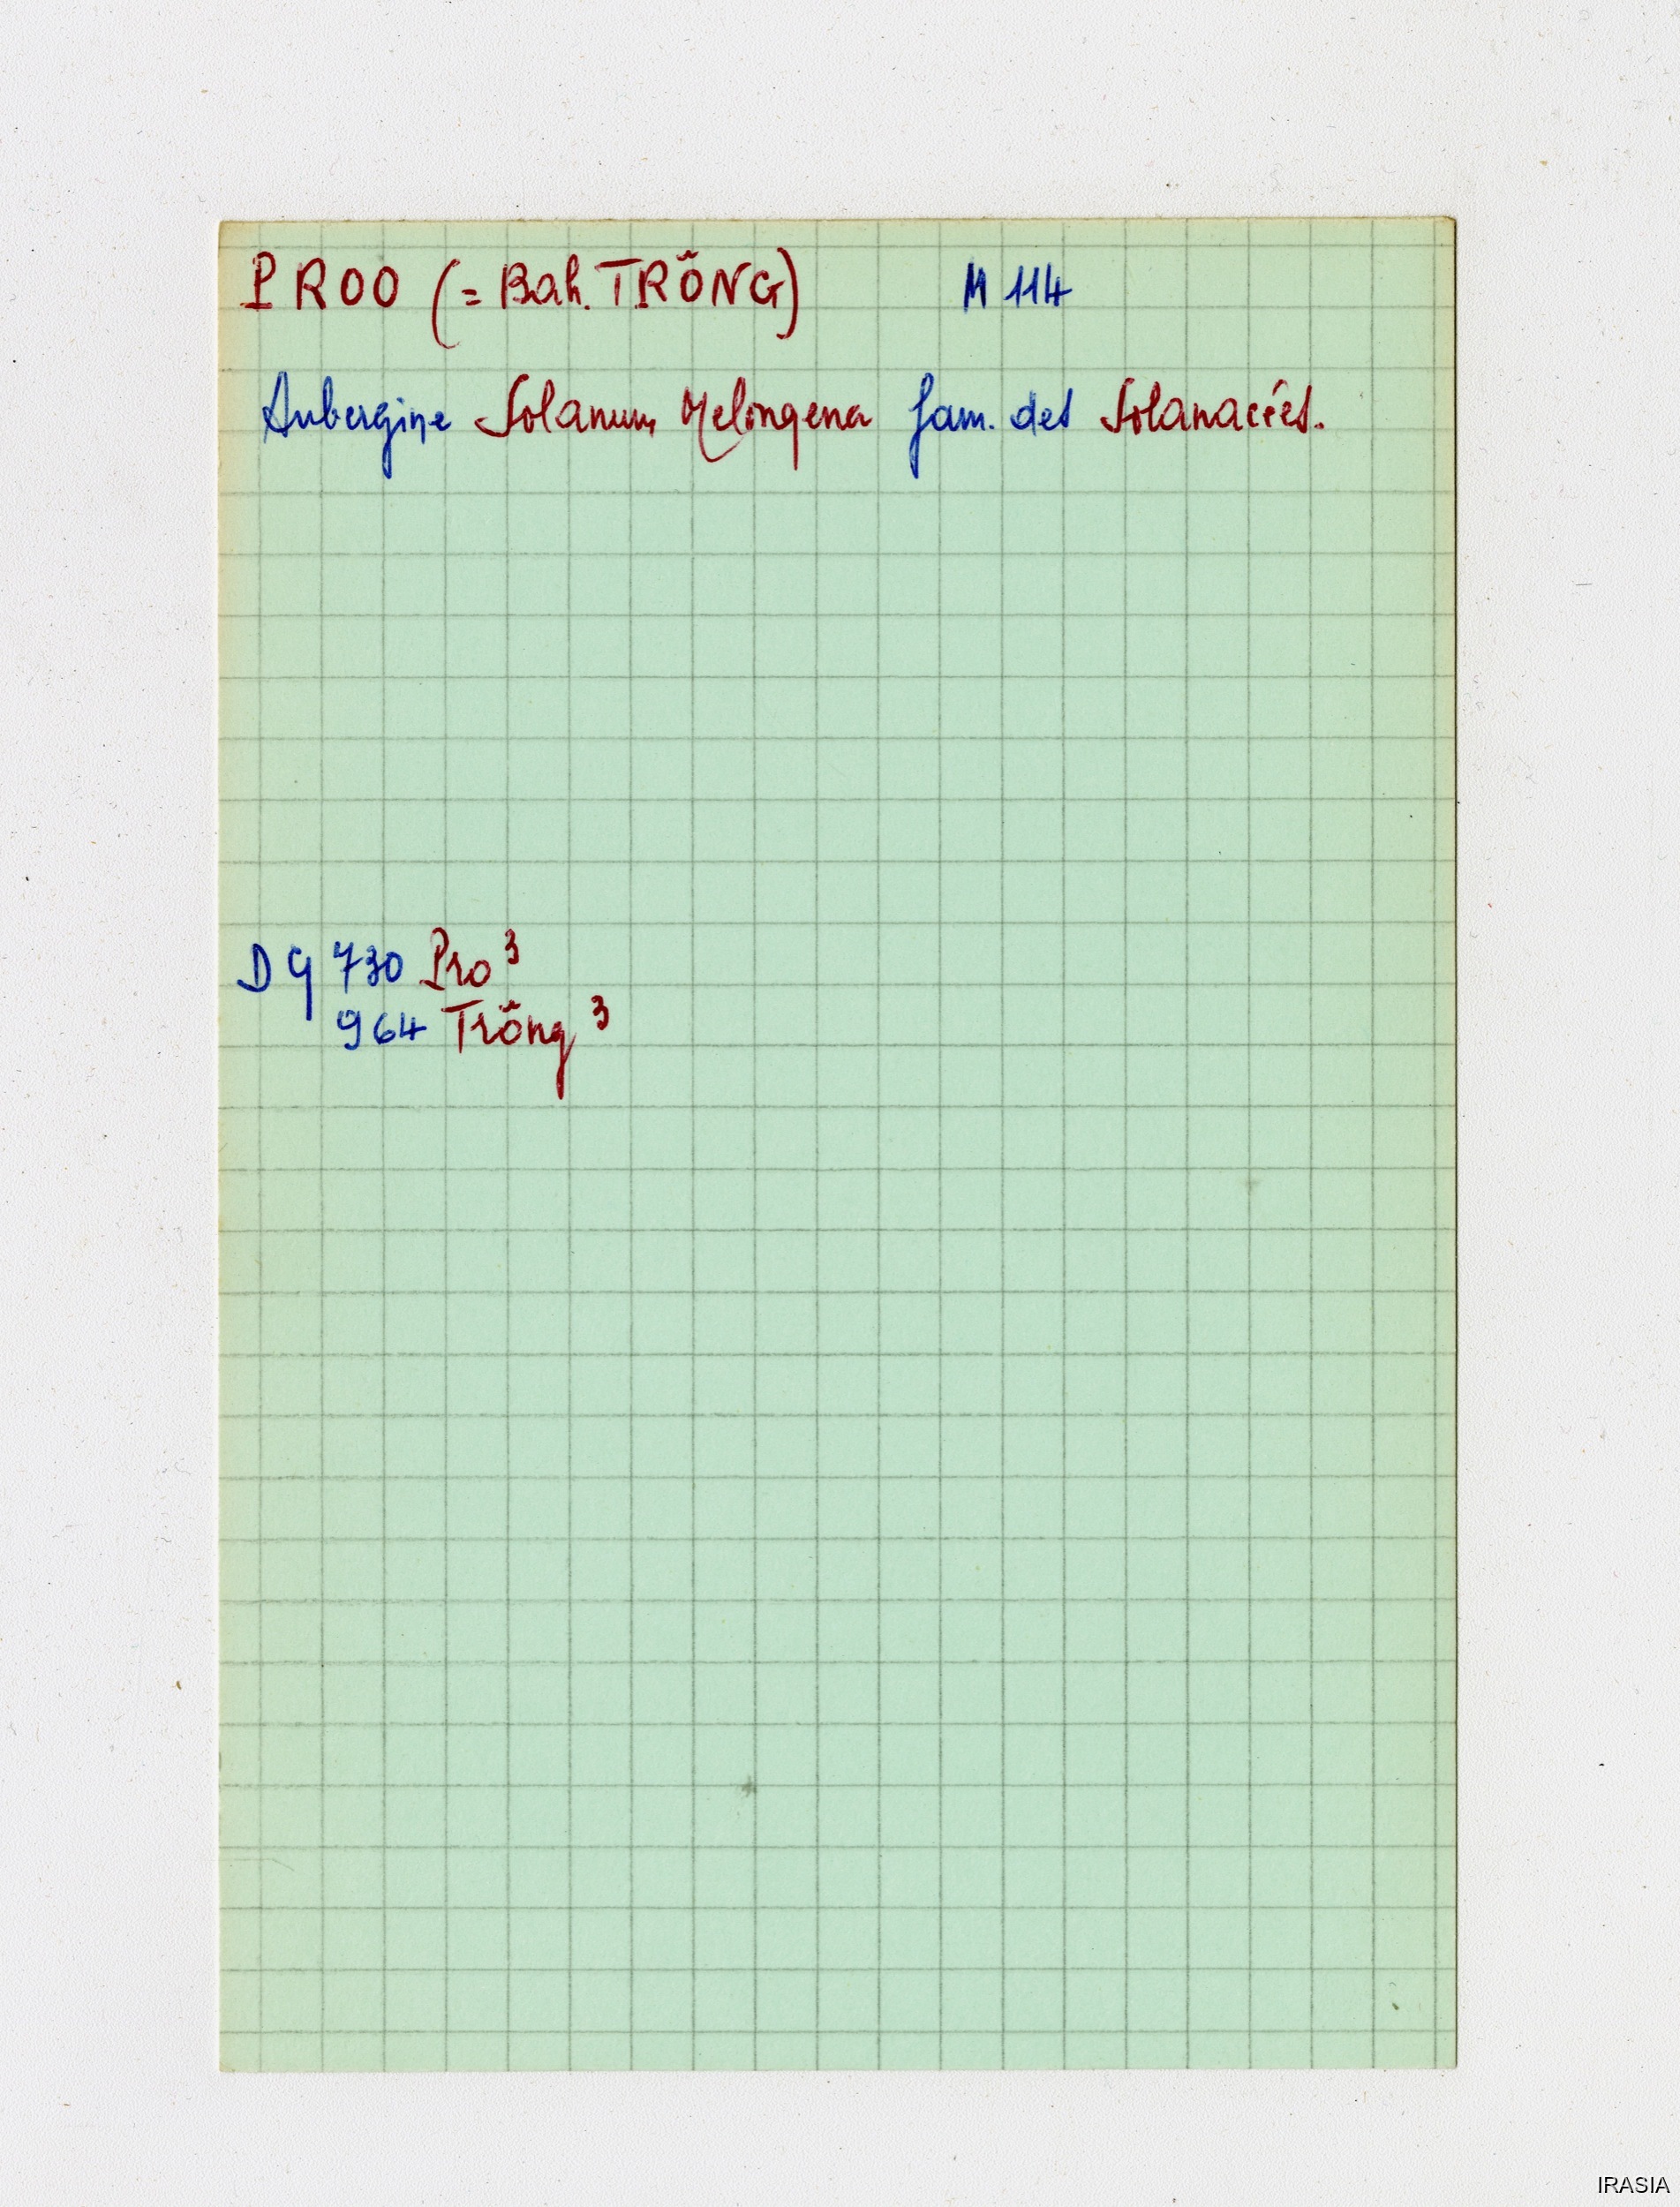 PROO (= Bah. TRÕNG) M 114
Aubergine Solanum Melongena fam. des Solanacées.
DG 730 Pro ³
964 Trõng ³
IRASIA